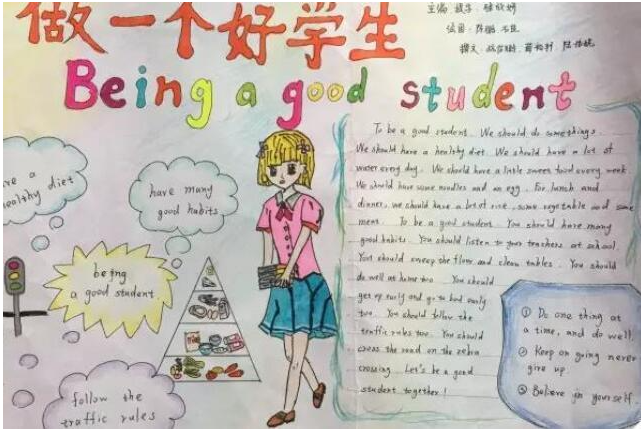 做一个好学生
主编
绘图
撰文
Being a good student
healthy diet
have many
good habits
being
a good student
follow the
traffic rules
To be a good student. We should do somethings.
We should have a healthy diet. We should have a lot of
water every day. We should have a little sweet food every week
We should have some noodles and an egg. For lunch and
dinner, we should have a lot of rice, some vegetable and some
meat. To be a good student. You should have many
good habits. You should listen to your teachers at school.
You should sweep the floor and clean tables. You should
do well at home too. You should
get up early and go to bed early
too. You should follow the
traffic rules too. You should
cross the road on the zebra
crossing. Let's be a good
student together!
① Do one thing at
a time, and do well.
② Keep on going never
give up.
③ Believe in yourself.